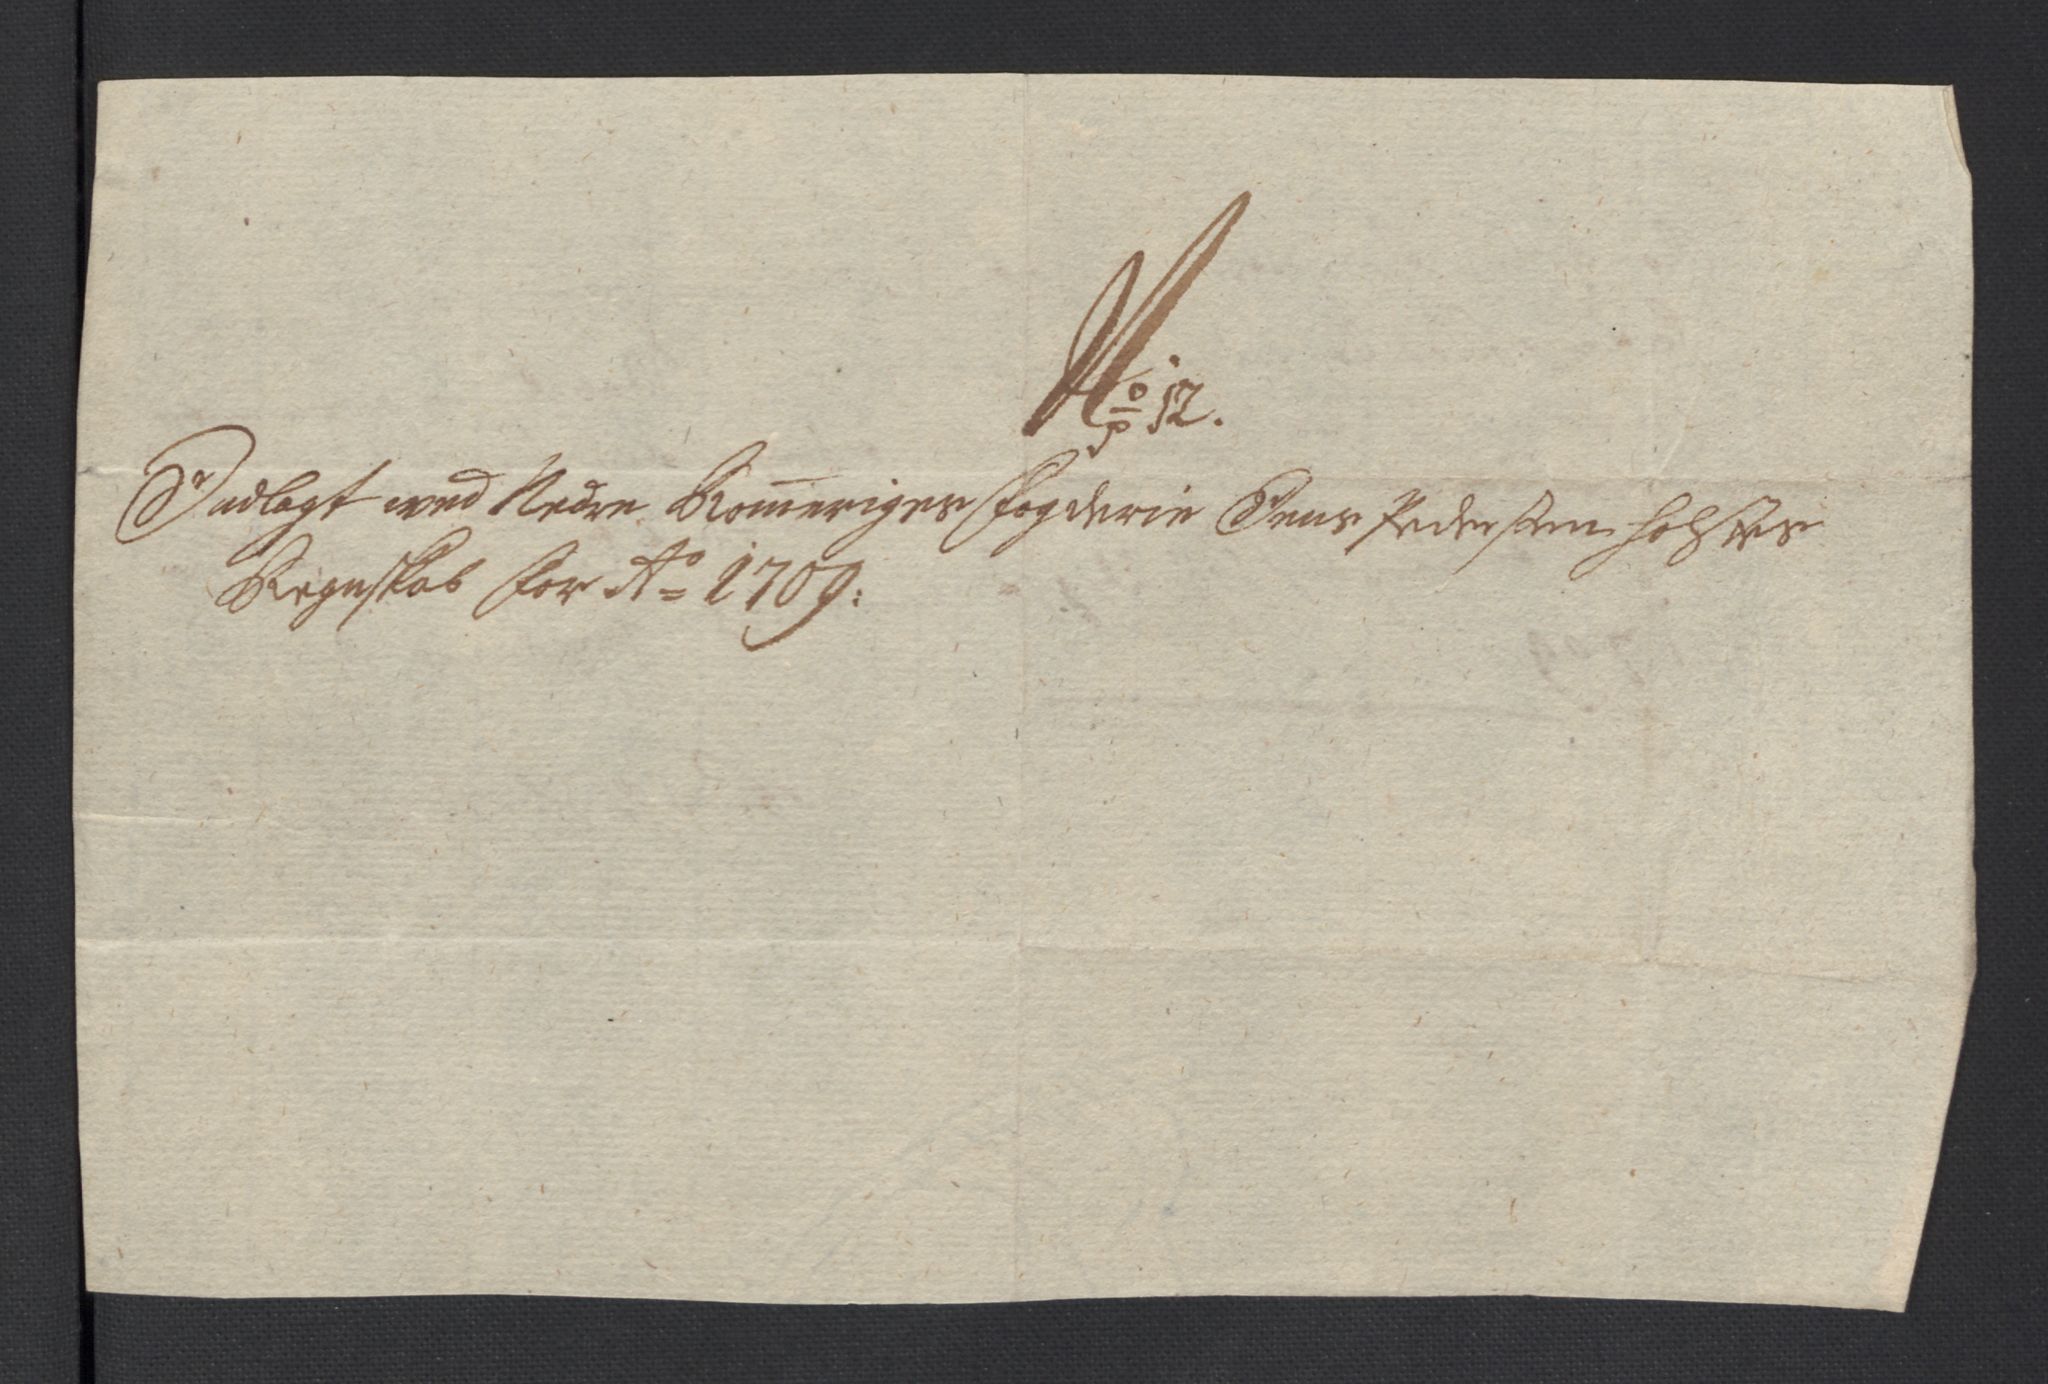 No 12.
Indlagt wed Nedre Romeriges Fogderie Jens Pedersen Holstes
Regnskab for Ao 1709: